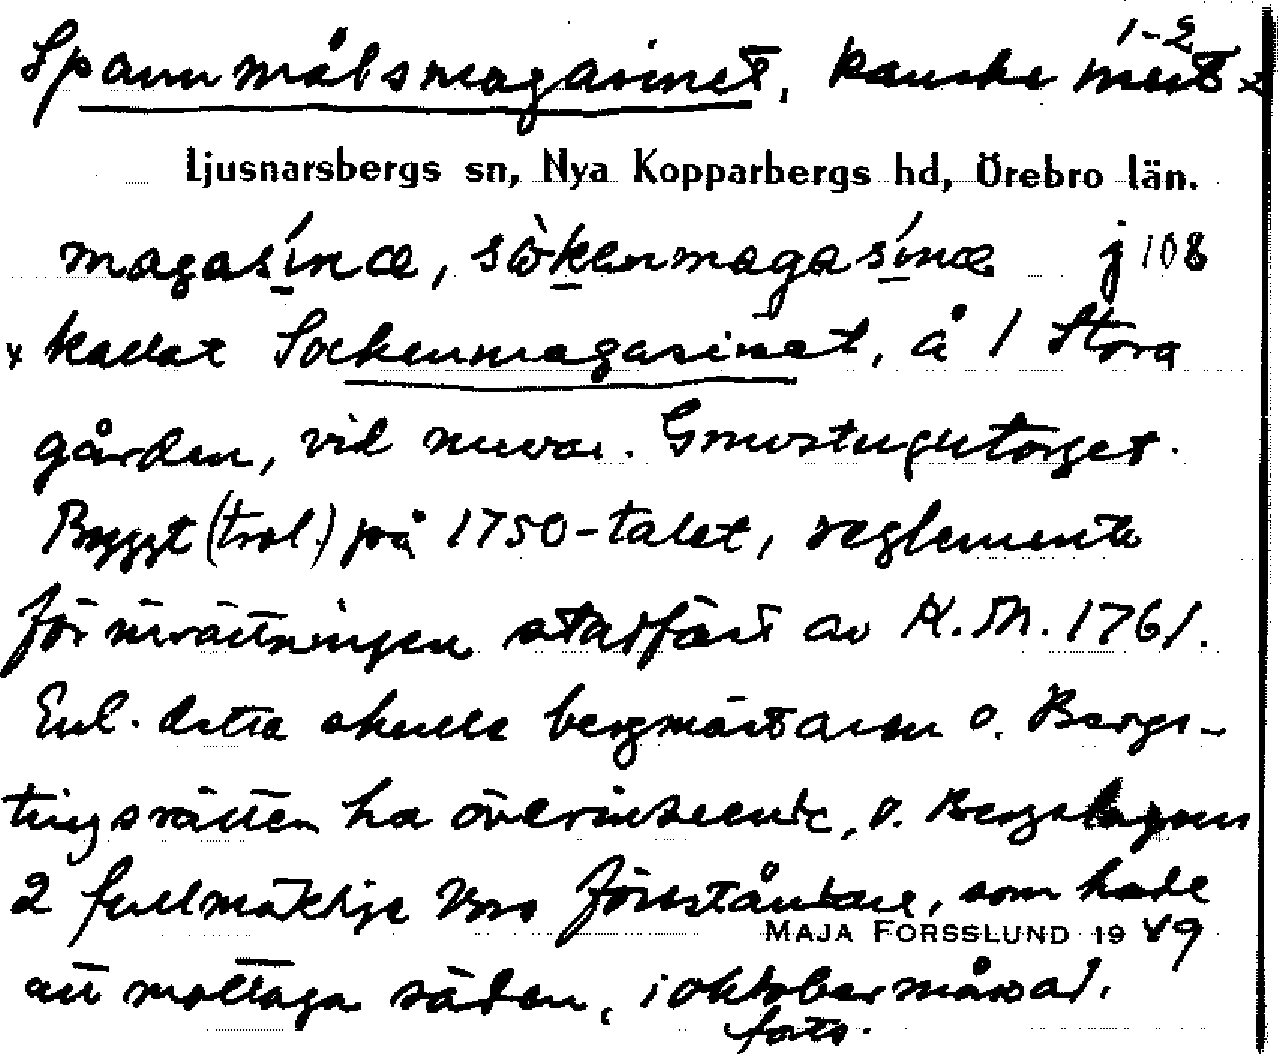 1-2
Spannmålsmagasinet, kanske mest x
Ljusnarsbergs sn, Nya Kopparbergs hd, Örebro län.
magasínæ, sòkenmagasínæ j 108
x kallat Sockenmagasinet, å 1 Stora
gården, vid nuvar. Gruvstugutorget.
Byggt (trol.) på 1750-talet, reglemente
för inrättningen stadfäst av K.M. 1761.
Enl. detta skulle bergmästaren o. Bergs-
tingsrätten ha överinseende, o. Bergslagens
2 fullmäktige voro föreståndare, som hade
MAJA FORSSLUND 19 49
att mottaga säden, i oktober månad.
forts.